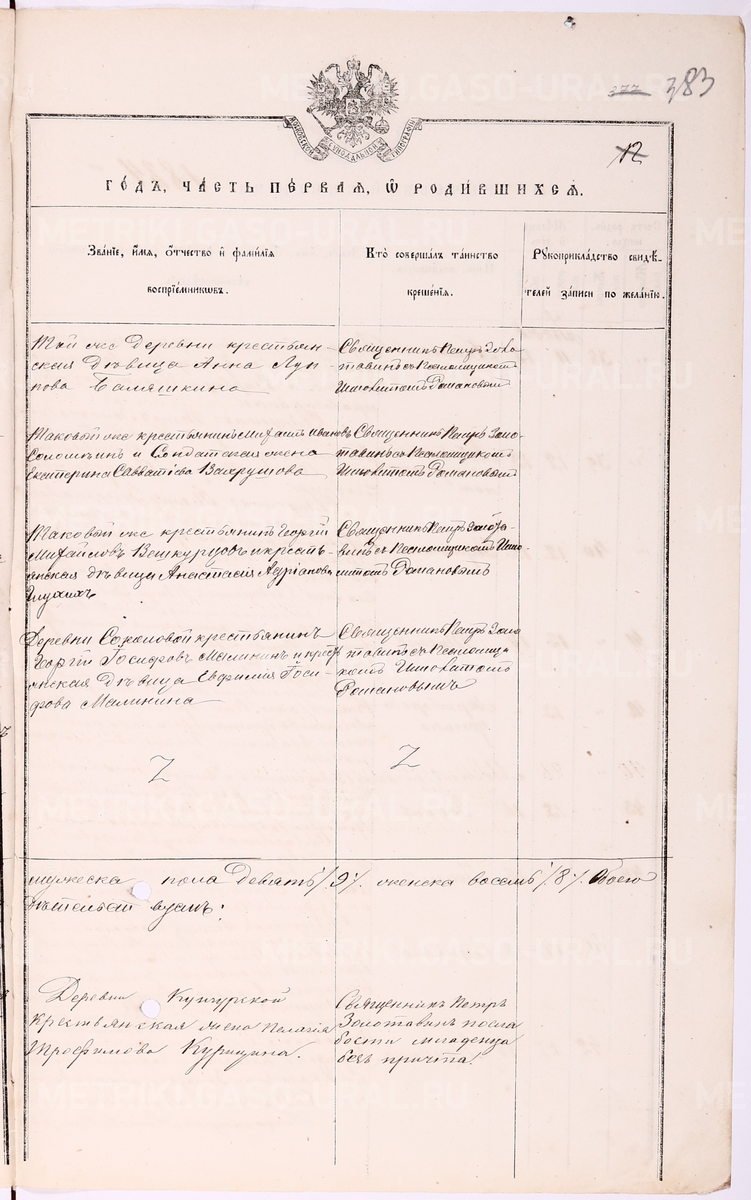 377 383
МОСКОВСКОЙ СѴНОДАЛЬНОЙ ТИПОГРАФІИ
12
ГО́ДЪ, ЧА́СТЬ ПЕ́РВАЯ, Ѡ РОДИ́ВШИХСЯ.
Зва́ніе, и́мя, о́тчество и фами́лія
воспріе́мниковъ.
Кто̀ соверша́лъ та́инство
креще́нія.
Рукоприкла́дство свидѣ́-
телей за́писи по жела́нію.
Той же деревни крестьян-
ская дѣвица Анна Луп-
пова Баляшкина
Священникъ Петръ Золо
тавинъ съ Псаломщикомъ
Романовымъ
Таковой же крестьянинъ Михаилъ Ивановъ
Соломеинъ и Солдатская жена
Екатерина Савватіева Вахрушова
Священникъ Петръ Золо-
тавинъ съ Псаломщикомъ
Романовымъ
Таковой же крестьянинъ Георгій
Михайловъ и кресть-
янская дѣвица Анастасія Адріанова
Глухихъ
Священникъ Петръ Золота-
винъ съ Псаломщикомъ Иппо-
литомъ Романовымъ
Деревни крестьянинъ
Георгій Іосифовъ Малининъ и крест
янская дѣвица Евфимія Іоси-
фова Малинина
Священникъ Петръ Золо
тавинъ съ Псаломщи
комъ Ипполитомъ
Романовымъ
Z Z
мужеска пола девять /9/. женска восемь /8/. Обоего
Деревни Кунгурской
крестьянская жена Пелагія
Трофимова Курицина.
Священникъ Петръ
Золотавинъ посла
бости младенца
безъ причта.